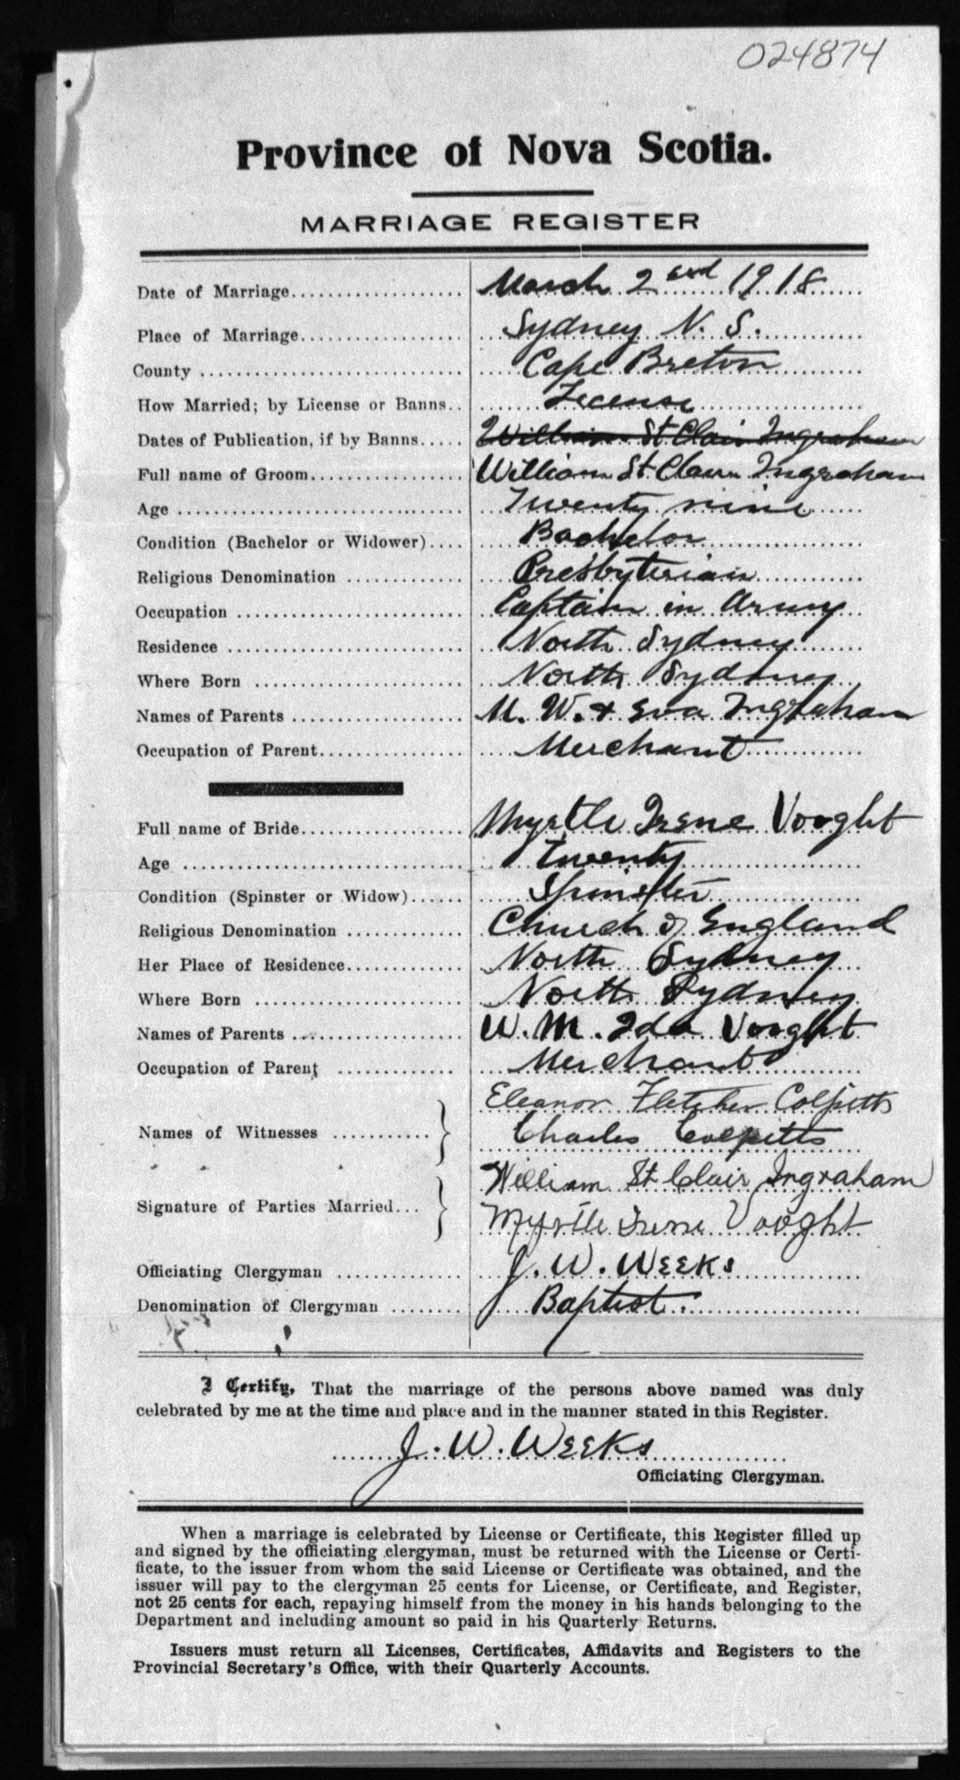 024874
Province of Nova Scotia.
MARRIAGE REGISTER
Date of Marriage.................... March 2nd 1918
Place of Marriage................... Sydney N. S.
County ............................. Cape Breton
How Married; by License or Banns.. License
Dates of Publication, if by Banns..... William St Clair Ingraham
Full name of Groom.................. William St Claire Ingraham
Age ................................ Twenty nine
Condition (Bachelor or Widower).... Bachelor
Religious Denomination ............. Presbyterian
Occupation ......................... Captain in Army
Residence .......................... North Sydney
Where Born ......................... North Sydney
Names of Parents ................... M. W. & Eva Ingraham
Occupation of Parent................ Merchant
Full name of Bride.................. Myrtle Irene Vooght
Age ................................ Twenty
Condition (Spinster or Widow)...... Spinster
Religious Denomination ............. Church of England
Her Place of Residence............. North Sydney
Where Born ......................... North Sydney
Names of Parents ................... W. M. Ida Vooght
Occupation of Parent ............... Merchant
Eleanor Fletcher Colpitts
Names of Witnesses ........... } Charles Colpitts
William St Clair Ingraham
Signature of Parties Married... } Myrtle Irene Vooght
Officiating Clergyman .............. J. W. Weeks
Denomination of Clergyman ........ Baptist.
I Certify, That the marriage of the persons above named was duly
celebrated by me at the time and place and in the manner stated in this Register.
J. W. Weeks
Officiating Clergyman.
When a marriage is celebrated by License or Certificate, this Register filled up
and signed by the officiating clergyman, must be returned with the License or Certi-
ficate, to the issuer from whom the said License or Certificate was obtained, and the
issuer will pay to the clergyman 25 cents for License, or Certificate, and Register,
not 25 cents for each, repaying himself from the money in his hands belonging to the
Department and including amount so paid in his Quarterly Returns.
Issuers must return all Licenses, Certificates, Affidavits and Registers to the
Provincial Secretary's Office, with their Quarterly Accounts.